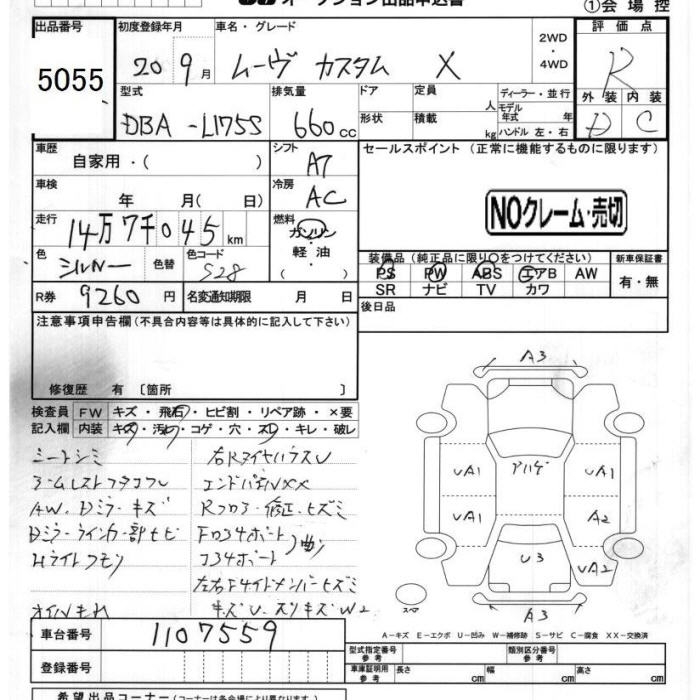 オークション出品申込書
①会場控
出品番号 5055
初度登録年月 20 9月
車名・グレード ムーヴ カスタム X
2WD・4WD
評価点 R
外装 D 内装 C
型式 DBA-L175S
排気量 660cc
ドア 形状
定員 人 積載 kg
ディーラー・並行
モデル年式 年
ハンドル 左・右
車歴 自家用・( )
シフト AT
セールスポイント (正常に機能するものに限ります)
車検 年 月( 日)
冷房 AC
NOクレーム・売切
走行 14万7千045km
燃料 ガソリン 軽油 ( )
色 シルバー 色替 色コード S28
装備品 (純正品に限り○をつけてください)
新車保証書 有・無
PS PW ABS エアB AW
SR ナビ TV カワ
R券 9260円 名変通知期限 月 日
後日品
注意事項申告欄(不具合内容等は具体的に記入して下さい)
修復歴 有 〔箇所 〕
検査員 FW キズ・飛石・ヒビ割・リペア跡・×要
記入欄 内装 キズ・汚れ・コゲ・穴・スレ・キレ・破レ
シートシミ
AW、Dミラーキズ
Dミラーウインカー部ヒビ
Hライトクモリ
オイルもれ
右RタイヤハウスU
エンドパネルXX
Rフロア修正・ヒズミ
キズU・スリキズW2
A3
UA1 アハゲ UA1
UA1 A2
U3 UA2
A3
スペア
A－キズ E－エクボ U－凹み W－補修跡 S－サビ C－腐食 XX－交換済
車台番号 1107559
登録番号
型式指定番号 参考 類別区分番号 参考
車庫証明用 参考 長さ cm 幅 cm 高さ cm
希望出品コーナー